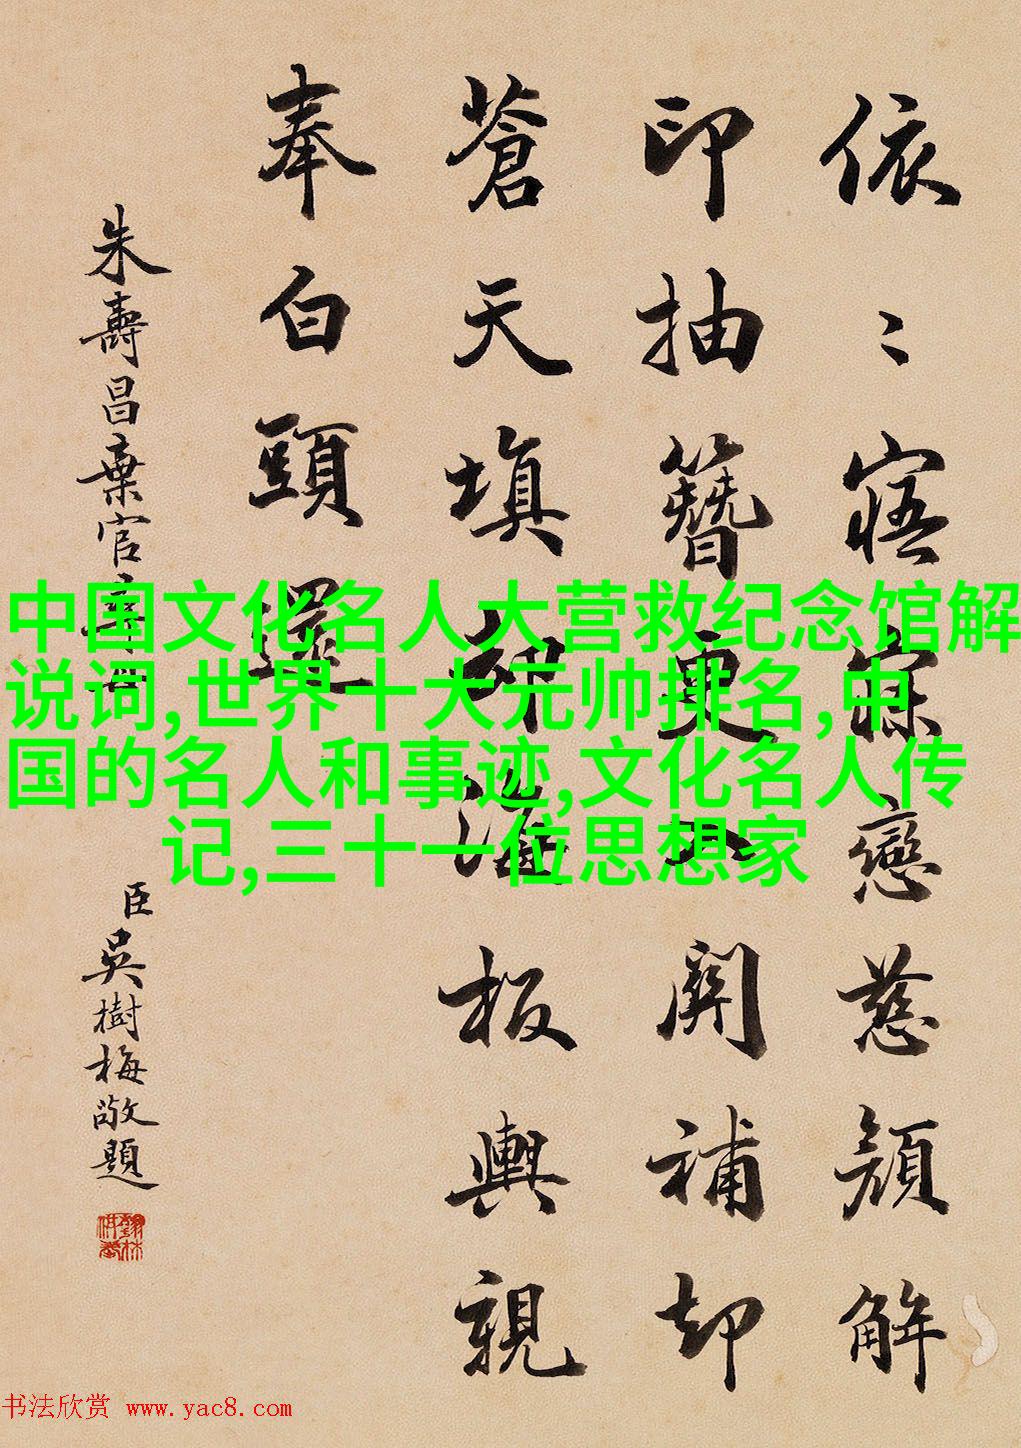 依〻寤寐戀慈顏解
印抽簪更 關補却
蒼天填却海板輿親
奉白頭還
朱壽昌棄官尋母
臣吳樹梅敬題
中国文化名人大营救纪念馆解
说词,世界十大元帅排名,中
国的名人和事迹,文化名人传
记,三十一位思想家
书法欣赏 www.yac8.com